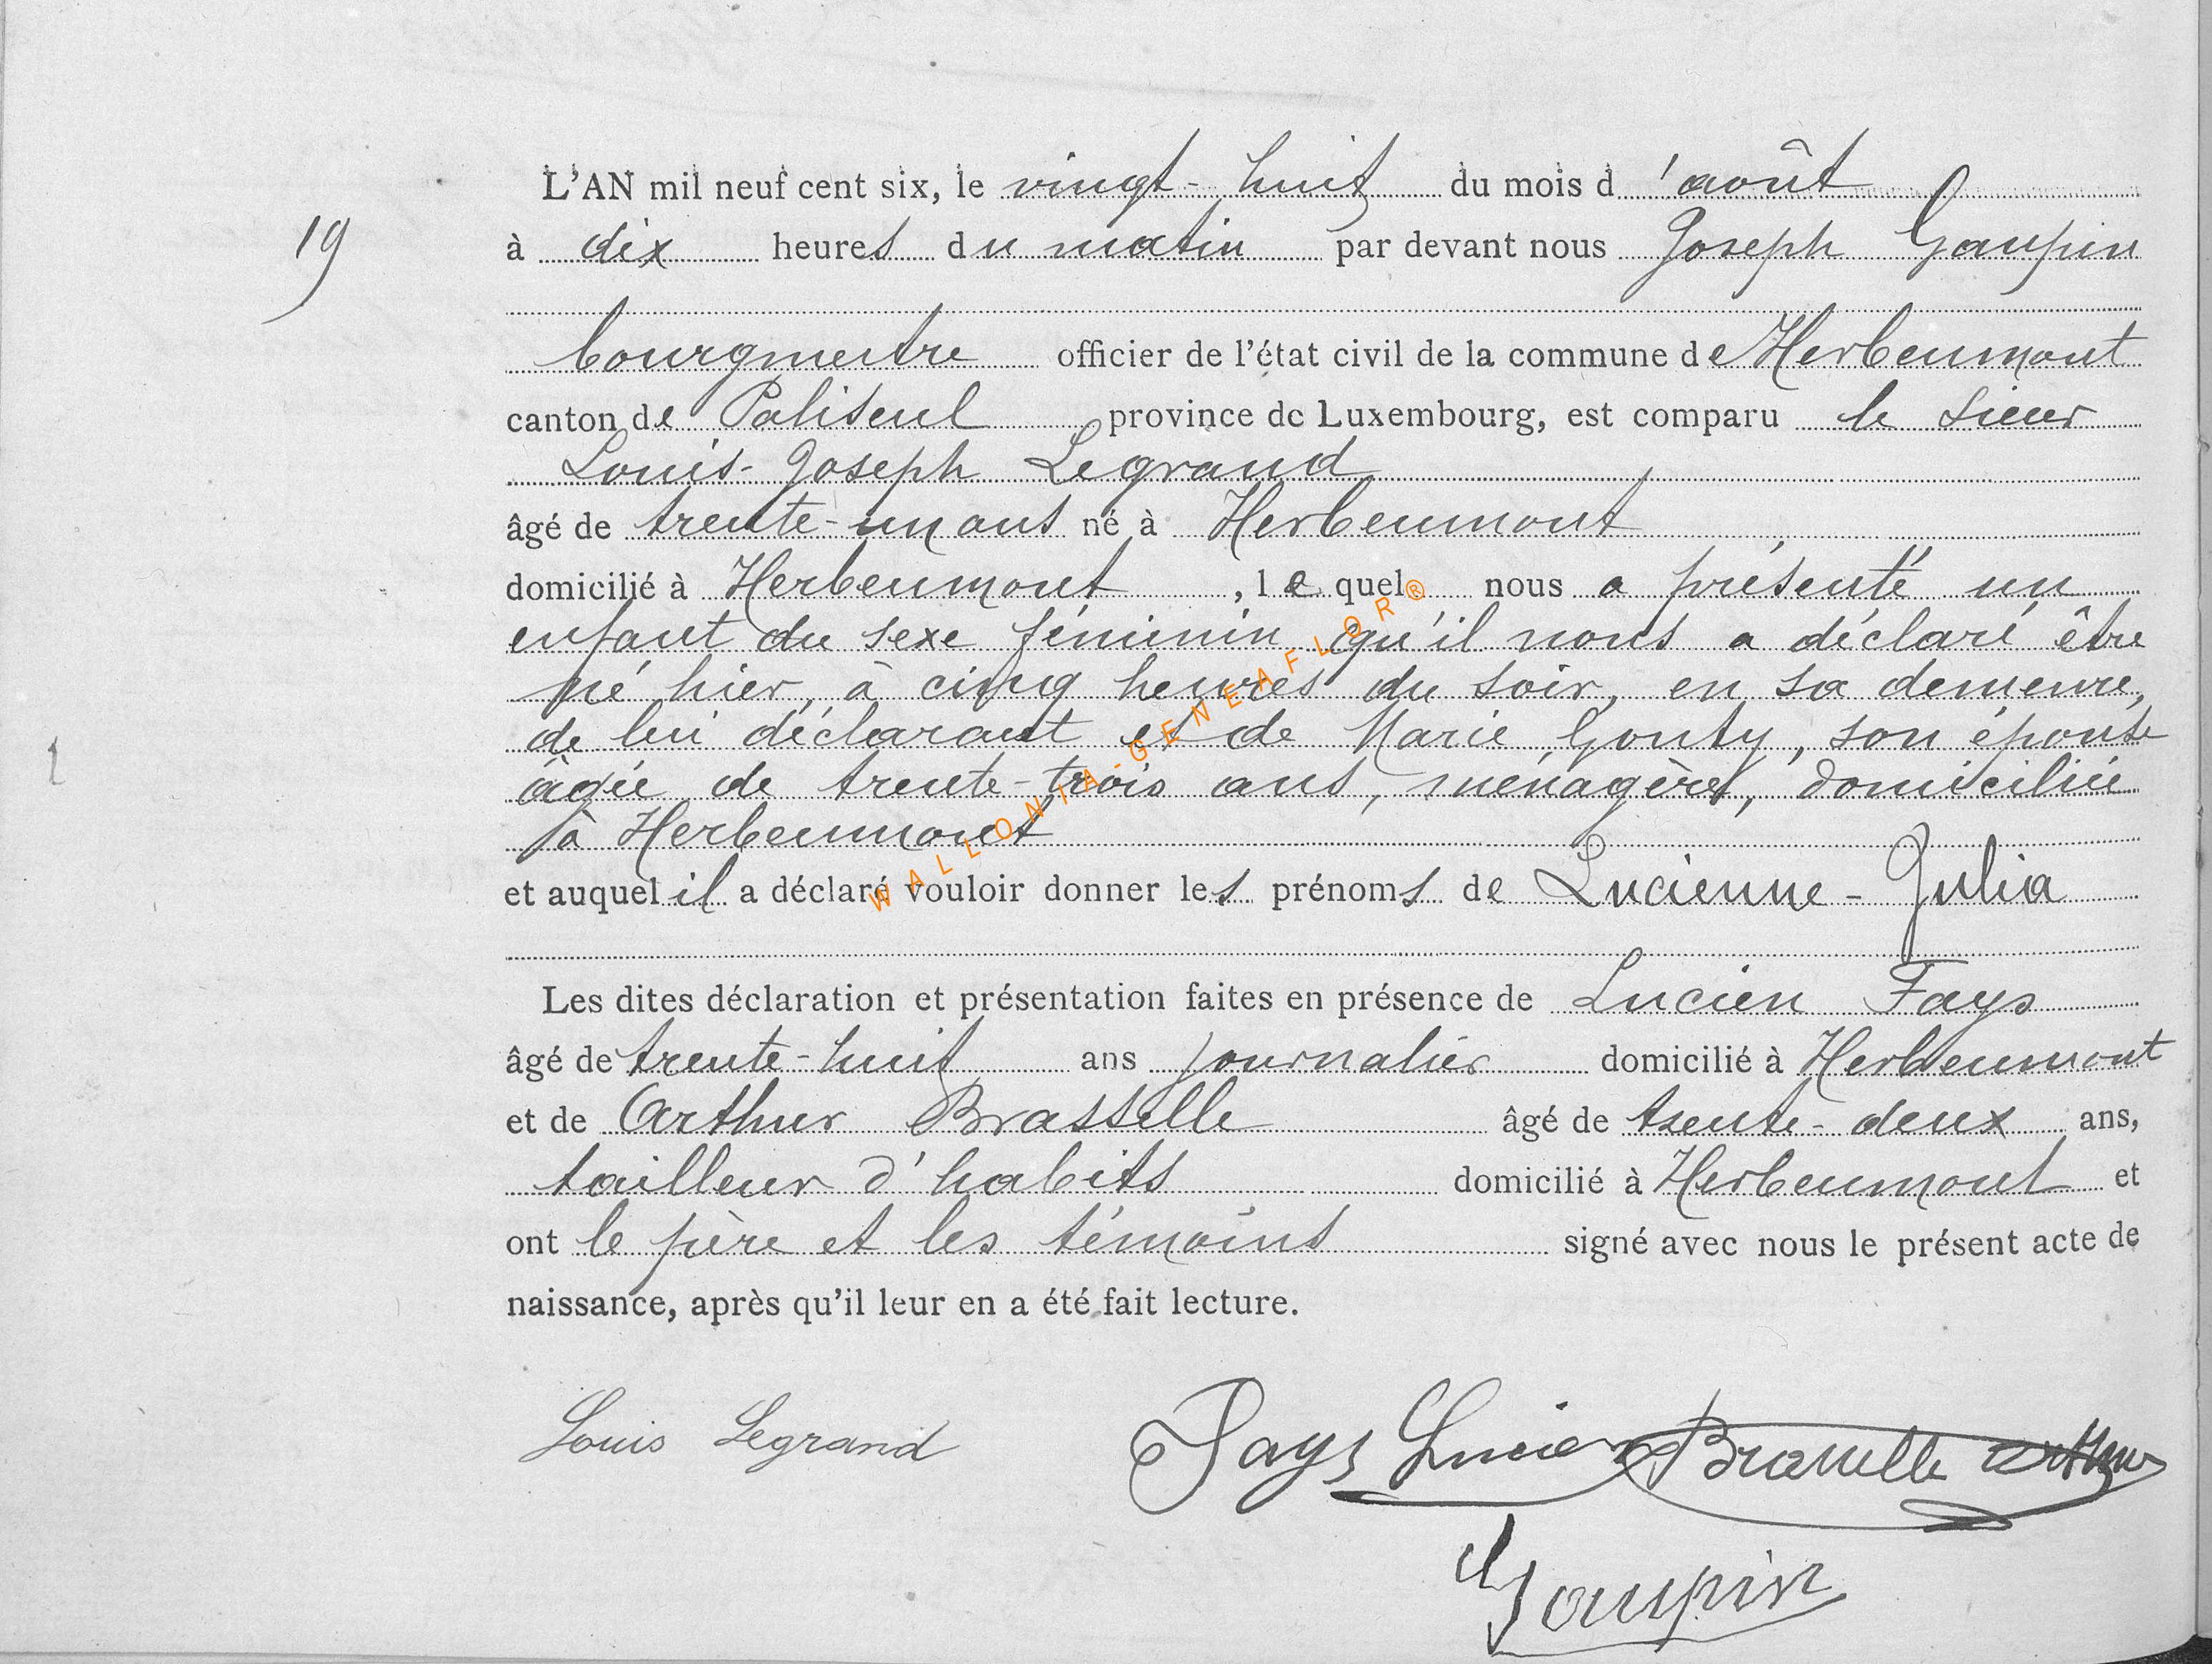 L'AN mil neuf cent six, le vingt-huit du mois d'août
19
à dix heures du matin par devant nous Joseph Gaupin
bourgmestre officier de l'état civil de la commune de Herbeumont
canton de Paliseul province de Luxembourg, est comparu le sieur
Louis-Joseph Legrand
âgé de trente-un ans né à Herbeumont
domicilié à Herbeumont, lequel nous a présenté un
enfant du sexe féminin qu'il nous a déclaré être
né hier, à cinq heures du soir, en sa demeure,
de lui déclarant et de Marie Gouty, son épouse
âgée de trente-trois ans, ménagère, domiciliée
à Herbeumont
et auquel il a déclaré vouloir donner les prénoms de Lucienne-Julia
Les dites déclaration et présentation faites en présence de Lucien Fays
âgé de trente-huit ans journalier domicilié à Herbeumont
et de Arthur Brasselle âgé de trente-deux ans,
tailleur d'habits domicilié à Herbeumont et
ont le père et les témoins signé avec nous le présent acte de
naissance, après qu'il leur en a été fait lecture.
Louis Legrand Fays Lucien Brasselle Arthur
Gaupin
WALLONIA-GENEAFLOR®